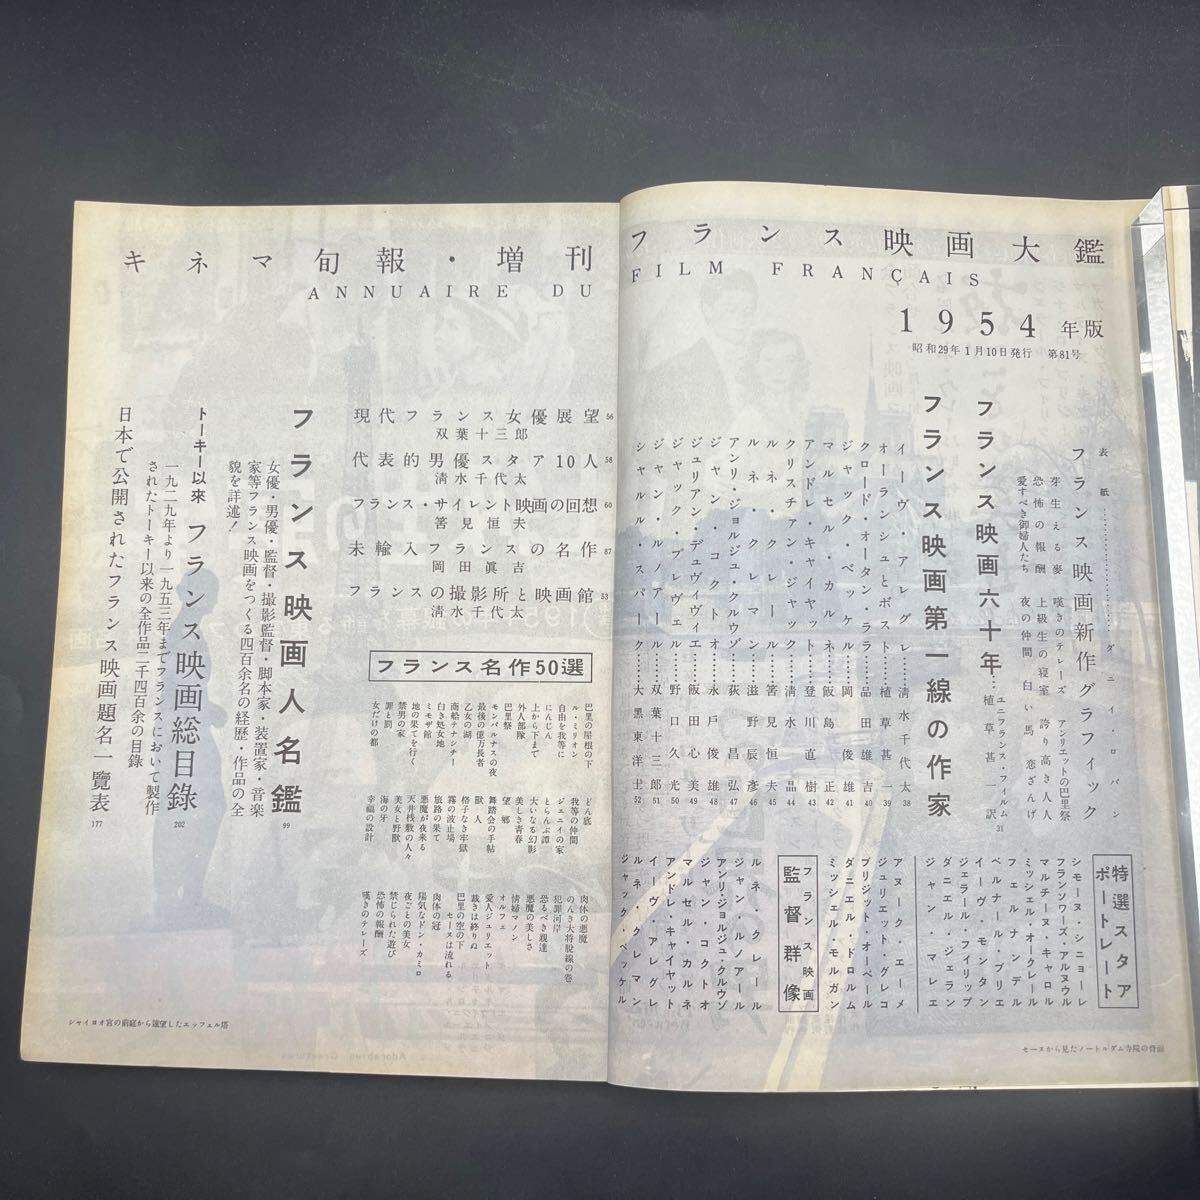 フランス映画大鑑
FILM FRANÇAIS
1954年版
昭和29年1月10日発行 第81号
表紙…ダニイ・ロバン
フランス映画新作グラフィック
芽生える麦
恐怖の報酬
愛すべき御婦人たち
嘆きのテレーズ
上級生の寝室
夜の仲間
アンリエットの巴里祭
誇り高き人々
白い馬
恋ざんげ
フランス映画六十年…ユニフランス・フィルム 植草甚一訳 31
フランス映画第一線の作家
イーヴ・アレグレ…清水千代太 38
オーランシュとボスト…植草甚一 39
クロード・オータン・ララ…品田雄吉 40
ジャック・ベッケル…岡俊雄 41
マルセル・カルネ…飯島正 42
アンドレ・カイヤット…登川直樹 43
クリスチァン・ジャック…清水晶 44
ルネ・クレール…筈見恒夫 45
ルネ・クレマン…滋野辰彦 46
アンリ・ジョルジュ・クルウゾ…荻昌弘 47
ジャン・コクトオ…永戸俊雄 48
ジュリアン・デュヴィヴィエ…飯田心美 49
ジャック・プレヴェル…野口久光 50
ジャン・ルノアール…双葉十三郎 51
シャルル・スパーク…大黒東洋士 52
特選スタア
ポートレート
シモーヌ・シニョーレ
フランソワーズ・アルヌウル
マルチーヌ・キャロル
ミッシェル・オークレール
フェルナンデル
ベルナール・ブリエ
イーヴ・モンタン
ジェラール・フィリップ
ダニエル・ジェラン
ジャン・マレエ
アヌーク・エーメ
ジュリエット・グレコ
ブリジット・オーベール
ダニエル・ドロルム
ミッシェル・モルガン
フランス映画
監督群像
ルネ・クレール
ジャン・ルノアール
アンリ・ジョルジュ・クルウゾ
ジャン・コクトオ
マルセル・カルネ
アンドレ・カイヤット
イーヴ・アレグレ
ルネ・クレマン
ジャック・ベッケル
セーヌから見たノートルダム寺院の背面
キネマ旬報・増刊
ANNUAIRE DU
現代フランス女優展望 56
双葉十三郎
代表的男優スタア10人 58
清水千代太
フランス・サイレント映画の回想 60
筈見恒夫
未輸入フランスの名作 87
岡田眞吉
フランスの撮影所と映画館 53
清水千代太
フランス名作50選
巴里の屋根の下
ル・ミリオン
自由を我等に
にんじん
上から下まで
外人部隊
巴里祭
モンパルナスの夜
最後の億万長者
乙女の湖
商船テナシチー
白き処女地
ミモザ館
地の果てを行く
禁男の家
罪と罰
女だけの都
どん底
我等の仲間
ジェニイの家
とらんぷ譚
大いなる幻影
美しき青春
望郷
舞踏会の手帖
獣人
格子なき牢獄
霧の波止場
旅路の果て
悪魔が夜来る
天井桟敷の人々
美女と野獣
海の牙
幸福の設計
肉体の悪魔
のんき大将脱線の巻
犯罪河岸
恐るべき親達
悪魔の美しさ
情婦マノン
オルフェ
愛人ジュリエット
裁きは終りぬ
巴里の空の下セーヌは流れる
肉体の冠
陽気なドン・カミロ
夜ごとの美女
禁じられた遊び
恐怖の報酬
嘆きのテレーズ
フランス映画人名鑑 99
女優・男優・監督・撮影監督・脚本家・装置家・音楽
家等フランス映画をつくる四百余名の経歴・作品の全
貌を詳述!
トーキー以来 フランス映画総目錄 202
一九二九年より一九五三年までフランスにおいて製作
されたトーキー以来の全作品二千四百余の目録
日本で公開されたフランス映画題名一覽表 177
シャイヨオ宮の前庭から遠望したエッフェル塔